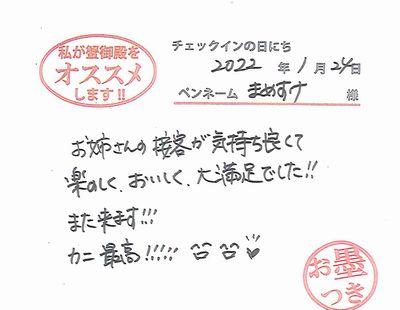 私が蟹御殿を
オススメ
します!!
チェックインの日にち
2022 年 1 月 24 日
ペンネーム まめすけ 様
お姉さんの接客が気持ち良くて
楽のしく、おいしく、大満足でした!!
また来ます!!!
カニ最高!!!!!
お墨
つき